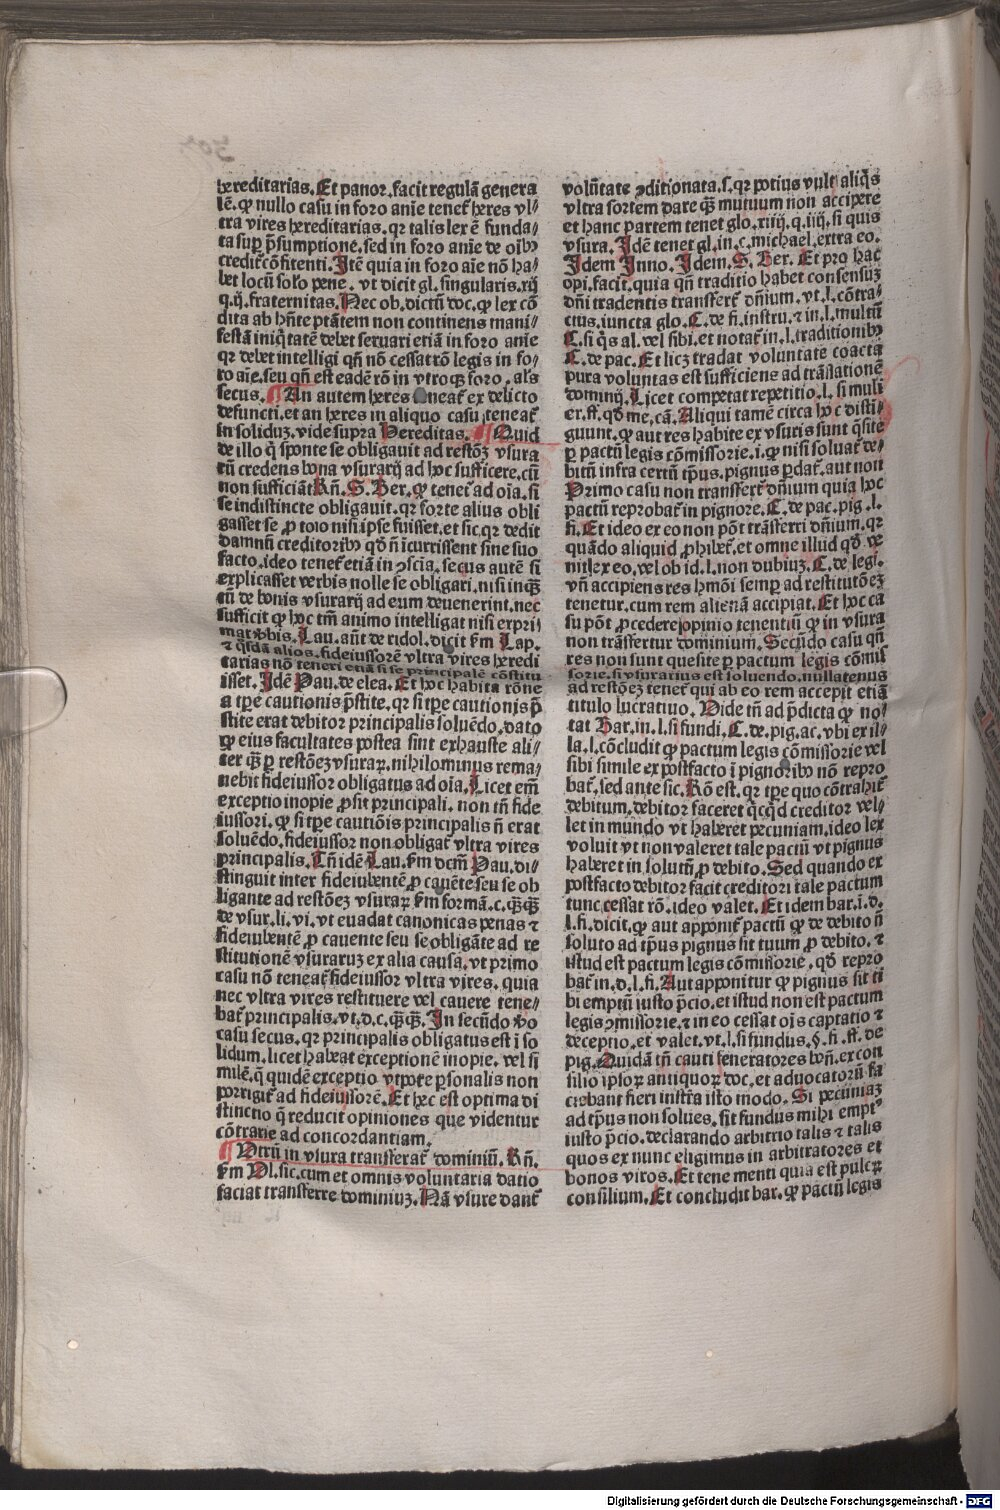 hereditarias. Et panor. facit regulã genera
lẽ. ꝙ nullo casu in foro anie teneť heres vl⸗
tra vires hereditarias. qr talis lex ẽ funda⸗
ta suꝑ p̃sumptione. sed in foro anie de oĩbꝰ
crediť cõfitenti. Itẽ quia in foro aĩe nõ ha⸗
bet locũ solo pene. vt dicit gl. singularis. xij
q. ij. fraternitas. Nec ob. dictũ doc. ꝙ lex cõ
dita ab hñte ptãtem non continens mani⸗
festã iniq̃tatẽ debet seruari etiã in foro anie
qr debet intelligi qñ nõ cessat rõ legis in fo⸗
ro aĩe. seu qñ est eadẽ rõ in vtroqꝫ foro. als
secus. ¶ An autem heres teneať ex delicto
defuncti. et an heres in aliquo casu teneať
in soliduꝫ. vide supra Hereditas. ¶ Quid
de illo q̃ sponte se obligauit ad restõeꝫ vsura
rũ credens bona vsurarij ad hoc sufficere. cũ
non sufficiãt Rñ. S. Ber. ꝙ teneť ad oĩa. si
se indistincte obligauit. qr forte alius obli
gasset se ꝓ toto nisi ipse fuisset. et sic. qr dedit
damnũ creditoribꝰ qd̃ ñ ĩcurrissent sine suo
facto. ideo teneť etiã in ꝯscĩa. secus autẽ si
explicasset verbis nolle se obligari. nisi inqꝫ̃
tũ de bonis vsurarij ad eum deuenerint. nec
sufficit ꝙ hoc tm̃ animo intelligat nisi expri⸗
mat ṽbis. Lau. aũt de ridol. dicit ẜm Lap.
⁊ q̃sdã alios. fideiussorẽ vltra vires heredi
tarias nõ teneri etiã si se principalẽ cõstitu
isset. Idẽ Pau. de elea. Et hoc habita rõne
a tꝑe cautionis p̃stite. qr si tꝑe cautionis p̃
stite erat debitor principalis soluẽdo. dato
ꝙ eius facultates postea sint exhauste ali⸗
ter qꝫ̃ ꝑ restõeꝫ vsuraꝝ. nihilominus rema⸗
nebit fideiussor obligatus ad oĩa. Licet em̃
exceptio inopie ꝓsit principali. non tñ fide
iussori. ꝙ si tꝑe cautiõis principalis ñ erat
soluẽdo. fideiussor non obligať vltra vires
principalis. Tñ idẽ Lau. ẜm dcm̃ Pau. di⸗
stinguit inter fideiubentẽ ꝓ cauẽte seu se ob
ligante ad restõeꝫ vsuraꝝ ẜm formã. c. qꝫ̃qꝫ̃
de vsur. li. vi. vt euadat canonicas penas ⁊
fideiubentẽ ꝓ cauente seu se obligãte ad re
stitutionẽ vsuraruꝫ ex alia causa. vt primo
casu nõ teneať fideiussor vltra vires. quia
nec vltra vires restituere vel cauere tene⸗
bať principalis. vt. d. c. qꝫ̃qꝫ̃. In secũdo ṽo
casu secus. qr principalis obligatus est ĩ so
lidum. licet habeat exceptionẽ inopie. vel si
milẽ. q̃ quidẽ exceptio vtpote ꝑsonalis non
porrigiť ad fideiussorẽ. Et hec est optima di
stinctio q̃ reducit opiniones que videntur
cõtrarie ad concordantiam.
¶ Vtrũ in vsura transferať dominiũ. Rñ.
ẜm Vl. sic. cum et omnis voluntaria datio
faciat transferre dominiuꝫ. Nã vsure danť
volũtate ꝯditionata. s. qr potius vult aliq̃s
vltra sortem dare qꝫ̃ mutuum non accipere
et hanc partem tenet glo. xiiij. q. iiij. si quis
vsura. Idẽ tenet gl. in. c. michael. extra eo.
Idem Inno. Idem. S. Ber. Et pro hac
opi. facit. quia qñ traditio habet consensuꝫ
dñi tradentis transferť dñium. vt. l. cõtra⸗
ctus. iuncta glo. C. de fi. instru. ⁊ in. l. multũ
C. si q̃s al. vel sibi. et notať in. l. traditionibꝰ
C. de pac. Et licꝫ tradat voluntate coacta
pura voluntas est sufficiens ad trãslationẽ
dominij. Licet competat repetitio. l. si muli
er. ff. qd̃ me. cã. Aliqui tamẽ circa hoc disti⸗
guunt. ꝙ aut res habite ex vsuris sunt q̃site
ꝑ pactũ legis cõmissorie. i. ꝙ nisi soluať de⸗
bitũ infra certũ tp̃us. pignus ꝑdať. aut non
Primo casu non transferť dñium quia hoc
pactũ reprobať in pignore. C. de pac. pig. l.
fi. Et ideo ex eo non põt trãsferri dñium. qr
quãdo aliquid ꝓhibeť. et omne illud qd̃ ve
nit ex eo. vel ob id. l. non dubiuꝫ. C. de legi.
vñ accipiens res hmõi semꝑ ad restitutõeꝫ
tenetur. cum rem alienã accipiat. Et hoc ca
su põt ꝓcedere opinio tenentiũ ꝙ in vsura
non trãsfertur dominium. Secũdo casu qñ
res non sunt quesite ꝑ pactum legis cõmis
sorie. si vsurarius est soluendo. nullatenus
ad restõeꝫ teneť qui ab eo rem accepit etiã
titulo lucratiuo. Vide tñ ad p̃dicta ꝙ no⸗
tat Bar. in. l. si fundi. C. de pig. ac. vbi ex il⸗
la. l. cõcludit ꝙ pactum legis cõmissorie vel
sibi simile ex postfacto ĩ pignoribꝰ nõ repro
bať. sed ante sic. Rõ est. qr tꝑe quo cõtrahiť
debitum. debitor faceret q̃cq̃d creditor vel⸗
let in mundo vt haberet pecuniam. ideo lex
voluit vt non valeret tale pactũ vt pignus
haberet in solutũ ꝓ debito. Sed quando ex
postfacto debitor facit creditori tale pactum
tunc cessat rõ. ideo valet. Et idem bar. i. d.
l. fi. dicit. ꝙ aut apponiť pactũ ꝙ de debito ñ
soluto ad tp̃us pignus sit tuum ꝓ debito. ⁊
istud est pactum legis cõmissorie. qd̃ repro
bať in. d. l. fi. Aut apponitur ꝙ pignus sit ti
bi emptũ iusto p̃cio. et istud non est pactum
legis ꝯmissorie. ⁊ in eo cessat oĩs captatio ⁊
deceptio. et valet. vt. l. si fundus. §. fi. ff. de
pig. Quidã tñ cauti feneratores boñ. ex con
silio ipsoꝝ antiquoꝝ doc. et aduocatorũ fa
ciebant fieri instr̃a isto modo. Si pecuniaꝫ
ad tp̃us non solues. sit fundus mihi emptꝰ
iusto p̃cio. declarando arbitrio talis ⁊ talis
quos ex nunc eligimus in arbitratores et
bonos viros. Et tene menti quia est pulcꝝ
consilium. Et concludit bar. ꝙ pactũ legis
Digitalisierung gefördert durch die Deutsche Forschungsgemeinschaft - DFG